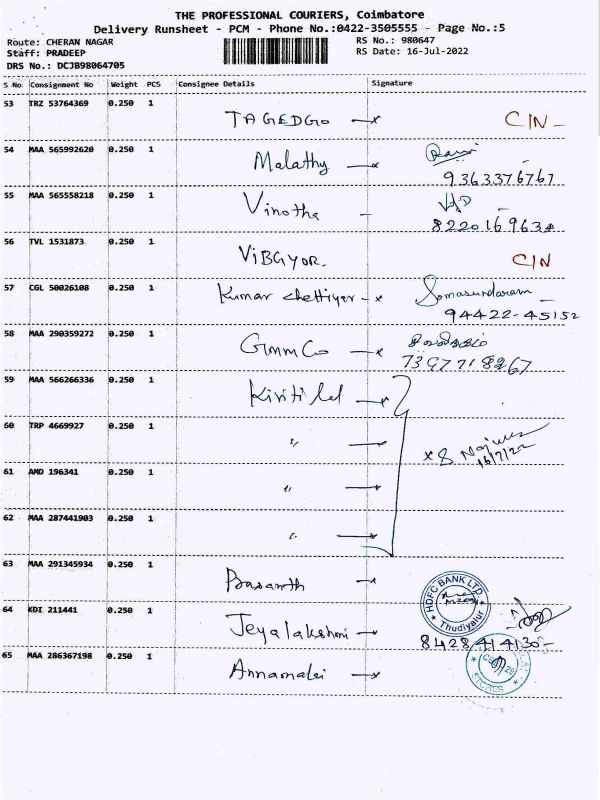 THE PROFESSIONAL COURIERS, Coimbatore
Delivery Runsheet - PCM - Phone No.:0422-3505555 - Page No.:5
Route: CHERAN NAGAR
RS No.: 980647
Staff: PRADEEP
RS Date: 16-Jul-2022
DRS No.: DCJB98064705
S No Consignment No Weight PCS Consignee Details Signature
53 TRZ 53764369 0.250 1
TAGEDGO CIN
54 MAA 565992620 0.250 1
Malathy
9363376767
55 MAA 565558218 0.250 1
Vinotha
56 TVL 1531873 0.250 1
VIBGYOR. CIN
57 CGL 50026108 0.250 1
Kumar chettiyar Somasundaram
94422-45152
58 MAA 290359272 0.250 1
GmmCo
7397718267
59 MAA 566266336 0.250 1
60 TRP 4669927 0.250 1
〃
16/7/22
61 AMD 196341 0.250 1
〃
62 MAA 287441903 0.250 1
〃
63 MAA 291345934 0.250 1
Prasanth
HDFC BANK LTD.
Thudiyalur
64 KDI 211441 0.250 1
Jeyalakshmi
8428414130
65 MAA 286367198 0.250 1
Annamalai